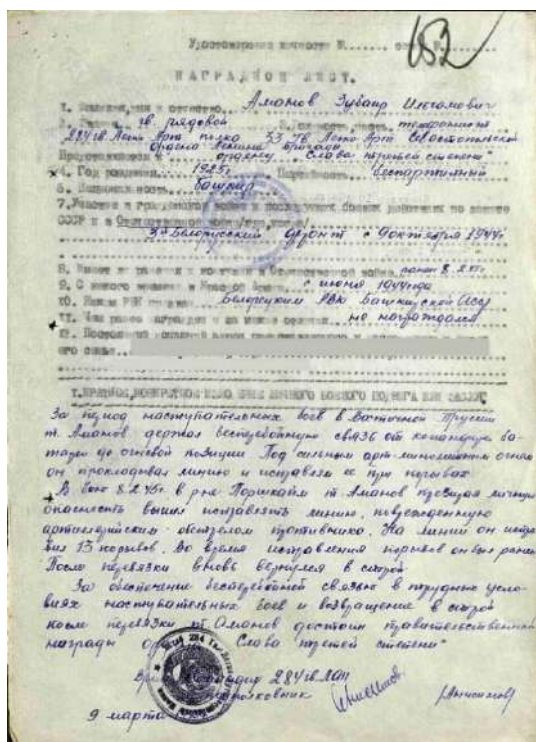 Удостоверения личности №....... №.......
652
НАГРАДНОЙ ЛИСТ.
1. Фамилия, имя и отчество.... Аманов Зубаир
2. Звание.... гв. рядовой телефонист
284 гв. Легко Арт полка 33 гв. Легко Арт Севастопольской
ордена Ленина бригады
Представляется к " ордену Слава третей степени"
4. Год рождения.... 1925г. Партийность.... беспартийный
6. Национальность.... башкир
7. Участие в гражданской войне и последующих боевых действиях по защите
СССР и в Отечественной войне
3й Белорусский фронт с 9 октября 1944г
8. Имеет ли ранения и контузии в Отечественной войне. ранен 8.2.45г.
9. С какого времени в Красной Армии.... с июня 1944года
10. Каким РВК призван.... Белорецким РВК Башкирской Асср
11. Чем ранее награжден и за какие отличия.... не награждался
12. Постоянный домашний адрес
его семьи...
1. КРАТКОЕ, КОНКРЕТНОЕ ИЗЛОЖЕНИЕ ЛИЧНОГО БОЕВОГО ПОДВИГА ИЛИ ЗАСЛУГ.
За период наступательных боев в Восточной Пруссии
т. Аманов держал бесперебойную связь от командира ба-
тареи до огневой позиции Под сильным арт-минометным огнем
он прокладывал линию и исправлял ее при порывах
В бою 8.2.45г. в р-не т. Аманов презирая личную
опасность вышел исправлять линию, поврежденную
артиллерийским обстрелом противника. На линии он испра
вил 13 порывов. Во время исправления порывов он был ранен
После перевязки вновь вернулся в строй.
За обеспечение бесперебойной связью в трудных усло-
виях наступательных боев и возвращение в строй
после перевязки т. Аманов достоин правительственной
награды Слава третей степени"
командир 284 гв. ЛАП
подполковник /Анисимов/
9 марта